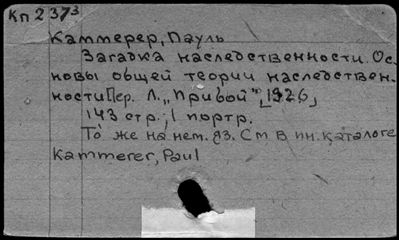 Кп 2373
Каммерер, Пауль
Загадка наследственности. Ос-
новы общей теории наследствен-
ности Пер. Л., „Прибой“, 1926,
143 стр.; 1 портр.
То же на нем. яз. См в ин. каталоге
Kammerer, Paul